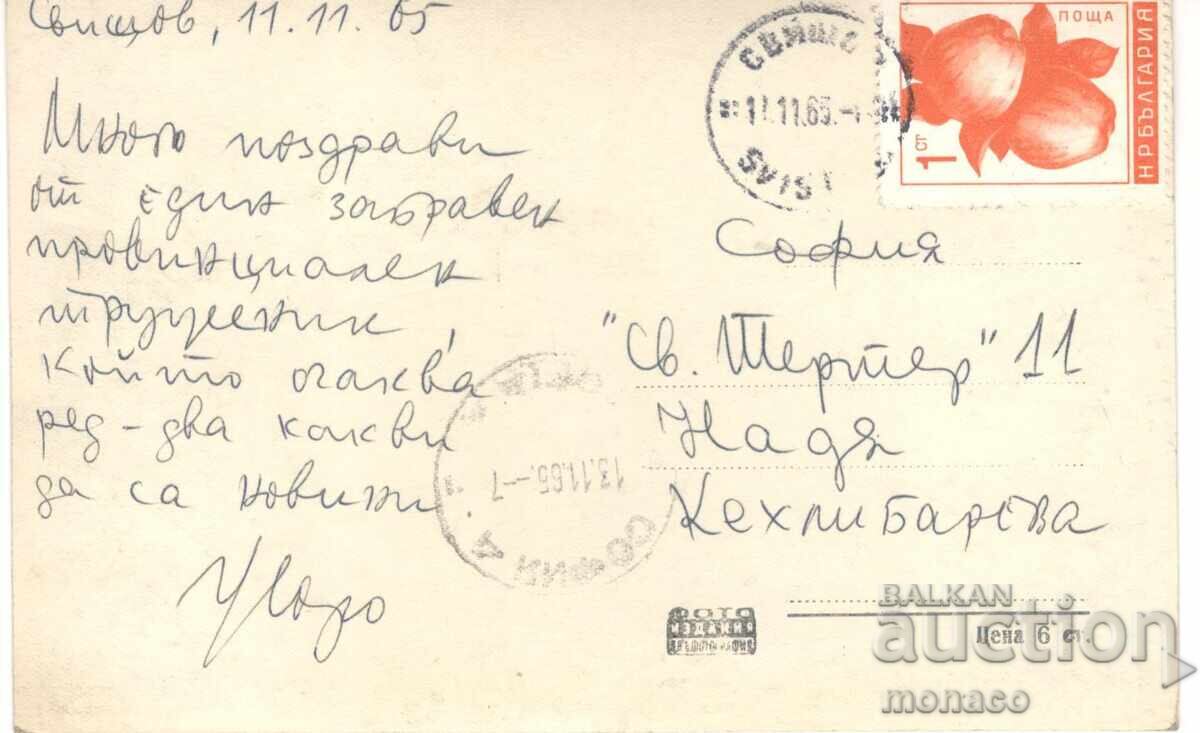 Свищов, 11.11.65
Много поздрави
от един забравен
провинциален
труженик,
който очаква
ред-два какви
да са новини
ПОЩА
НР БЪЛГАРИЯ
1 СТ
СВИЩО
11.11.65.-
SVIST
София
"Св. Тертер" 11
Надя
Кехлибарева
13.11.65.-7
СОФИЯ
ФОТО
ИЗДАНИЯ
Цена 6 ст.
BALKAN
auction
monaco